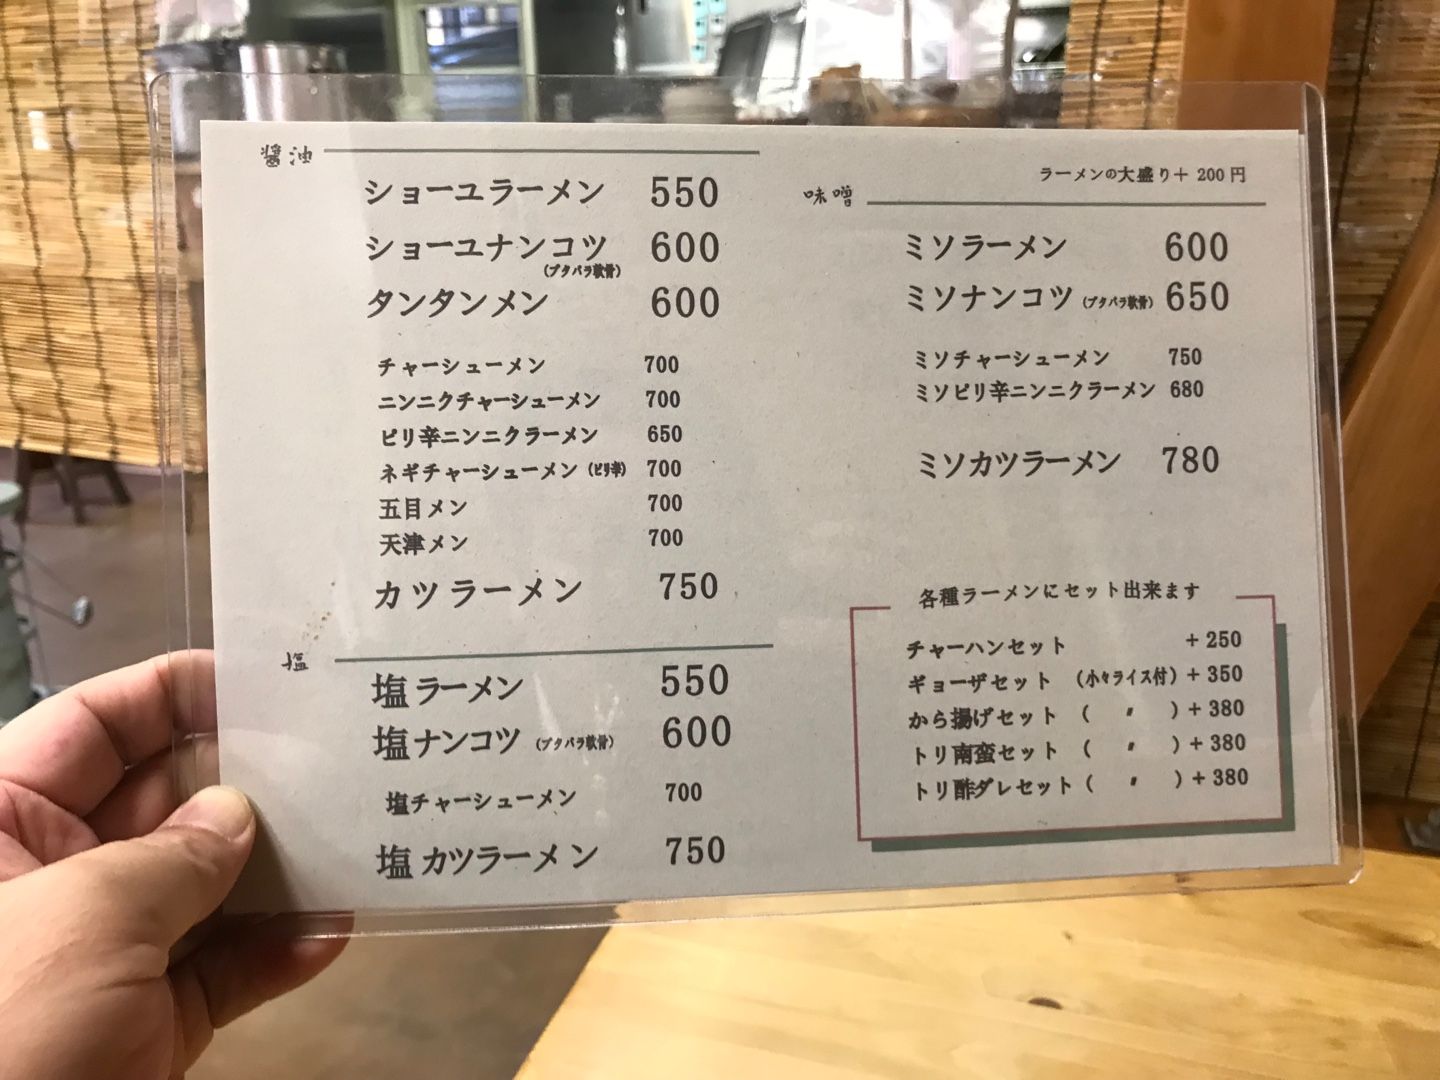 醤油
ショーユラーメン 550
ショーユナンコツ 600
(ブタバラ軟骨)
タンタンメン 600
チャーシューメン 700
ニンニクチャーシューメン 700
ピリ辛ニンニクラーメン 650
ネギチャーシューメン (ピリ辛) 700
五目メン 700
天津メン 700
カツラーメン 750
塩
塩ラーメン 550
塩ナンコツ (ブタバラ軟骨) 600
塩チャーシューメン 700
塩カツラーメン 750
ラーメンの大盛り+ 200円
味噌
ミソラーメン 600
ミソナンコツ (ブタバラ軟骨) 650
ミソチャーシューメン 750
ミソピリ辛ニンニクラーメン 680
ミソカツラーメン 780
各種ラーメンにセット出来ます
チャーハンセット +250
ギョーザセット (小々ライス付) +350
から揚げセット ( 〃 ) +380
トリ南蛮セット ( 〃 ) +380
トリ酢ダレセット ( 〃 ) +380